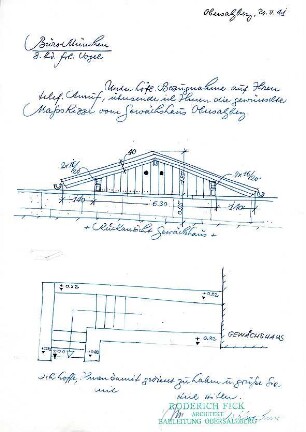 Obersalzberg, 21.V.41
Büro München
z.Hd. frl. Vogel
Unter höfl. Bezugnahme auf Ihren
telef. Anruf, übersende ich Ihnen die gewünschte
Maßskizze vom Gewächshaus Obersalzberg
40
1.40
6.30
1.40
+ Rückansicht Gewächshaus +
+0.02
+0.02
+0.02
GEWÄCHSHAUS
ich hoffe, Ihnen damit gedient zu haben u. grüße Sie
RODERICH FICK
ARCHITEKT
BAULEITUNG OBERSALZBERG